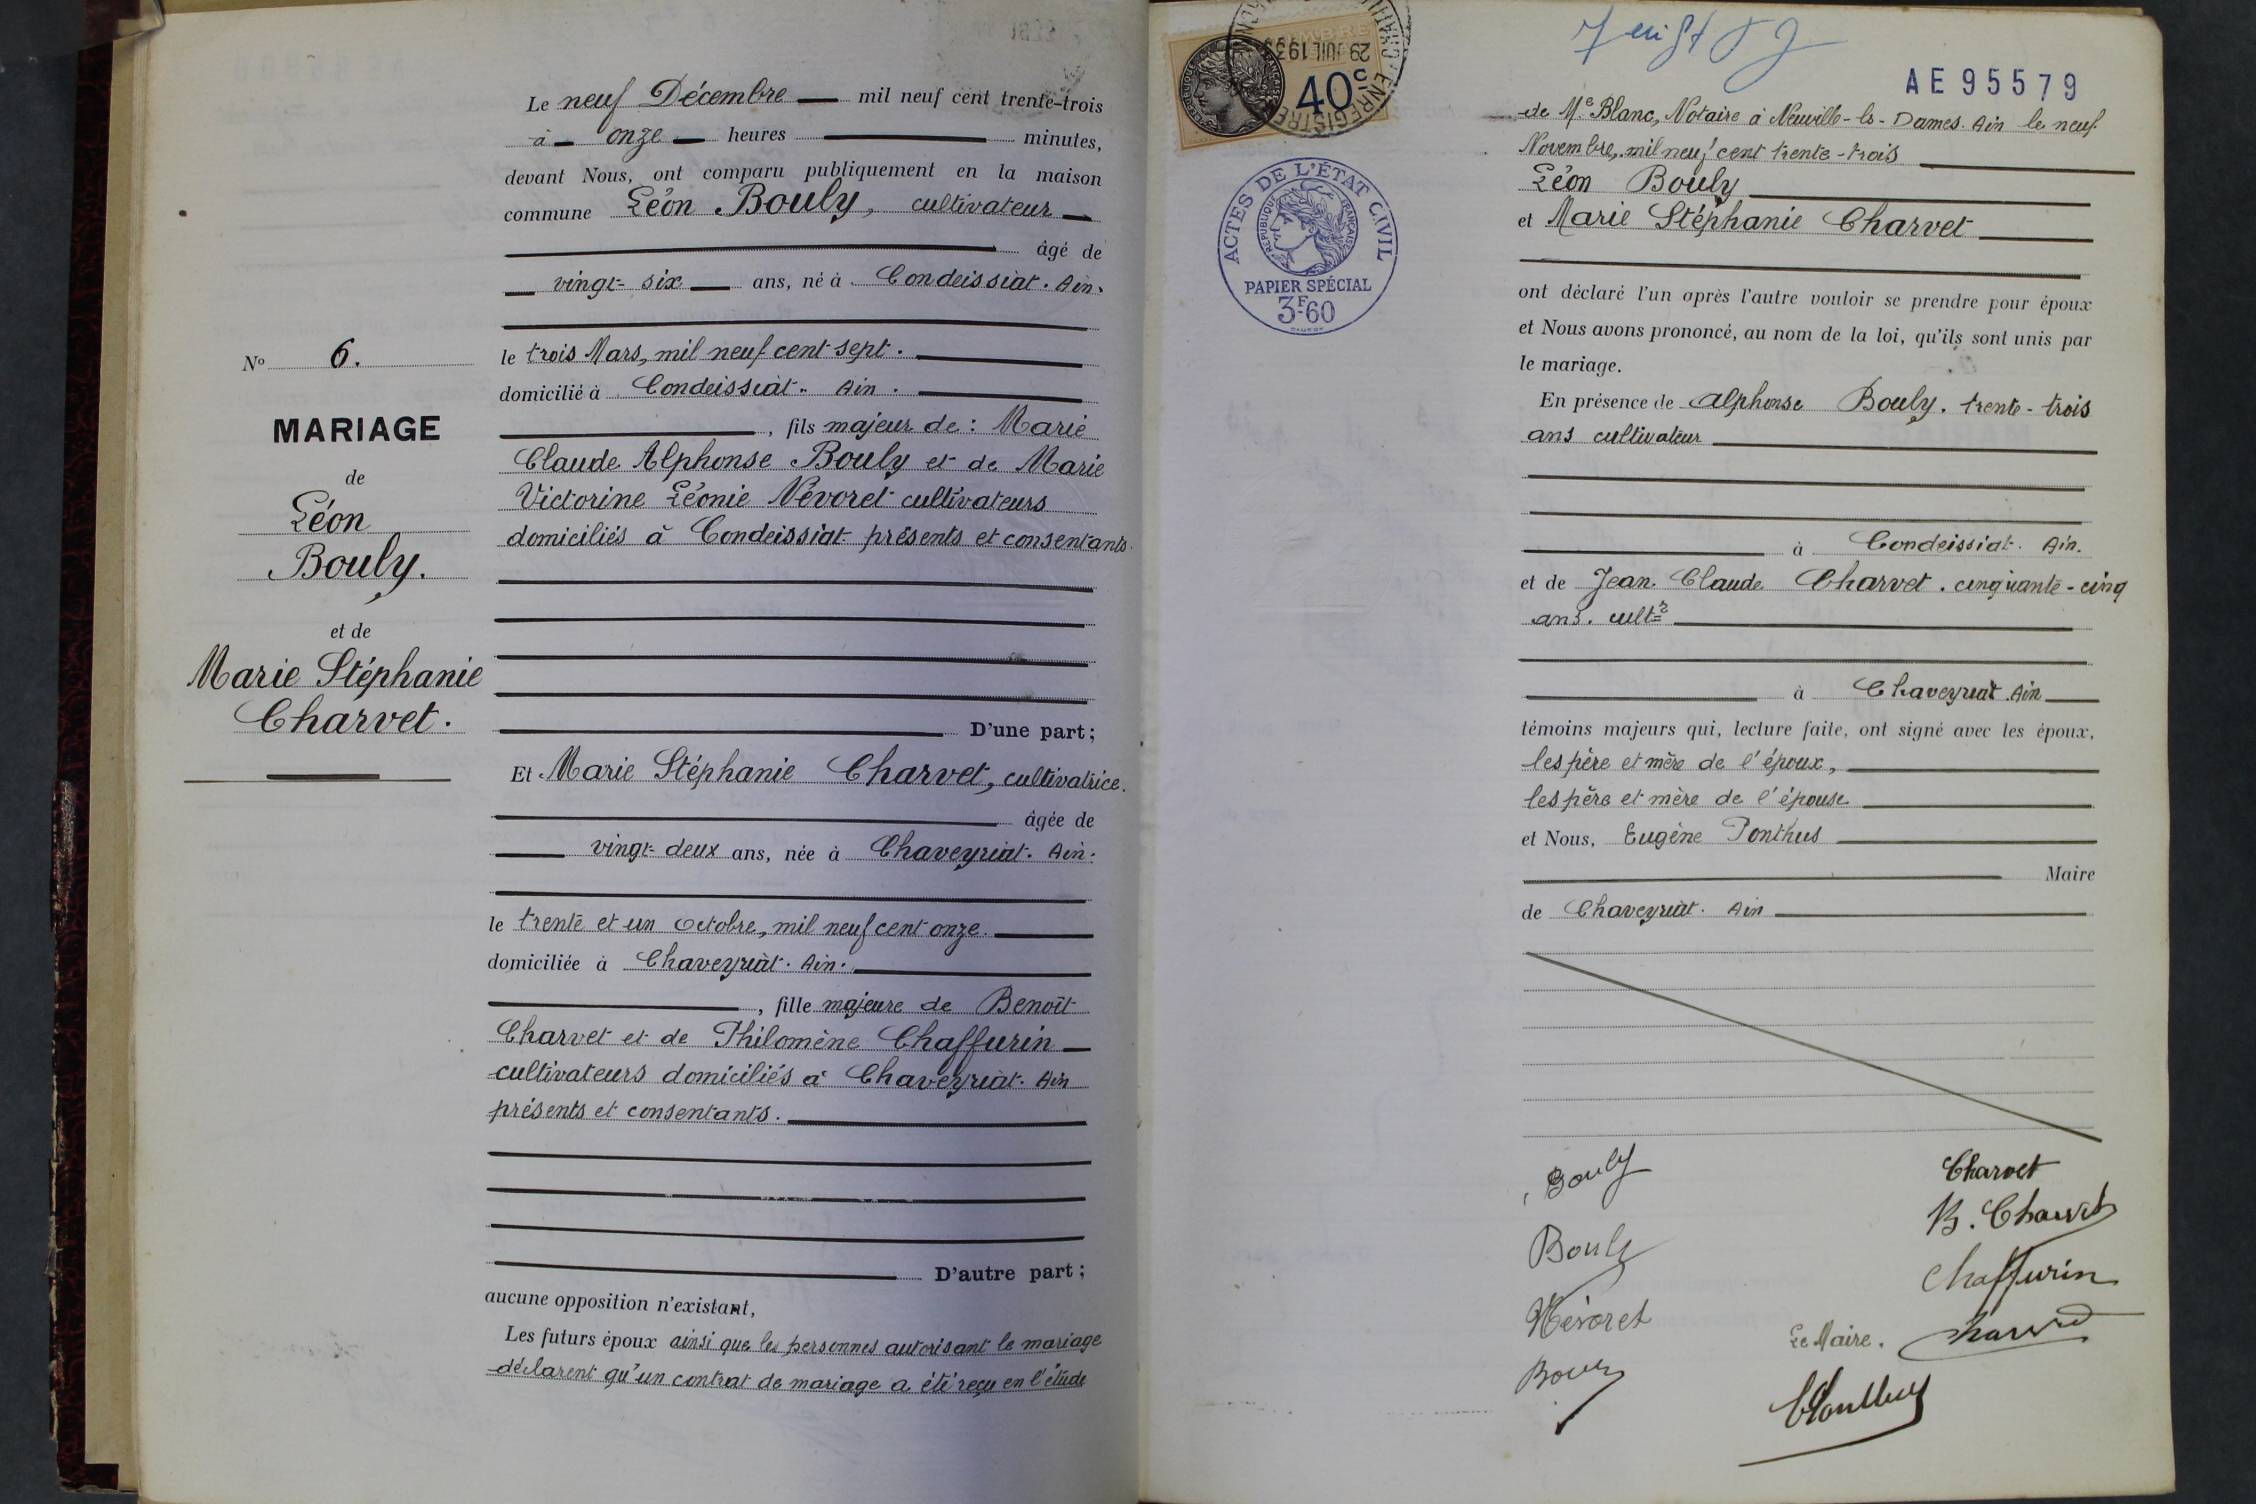 Le neuf Décembre mil neuf cent trente-trois
à onze heures minutes,
devant Nous, ont comparu publiquement en la maison
commune Léon Bouly, cultivateur
âgé de
vingt-six ans, né à Condeissiat. Ain.
le trois Mars, mil neuf cent sept.
domicilié à Condeissiat. Ain.
, fils majeur de : Marie
Claude Alphonse Bouly et de Marie
Victorine Léonie Névoret cultivateurs
domiciliés à Condeissiat présents et consentants
D'une part ;
Et Marie Stéphanie Charvet, cultivatrice.
âgée de
vingt-deux ans, née à Chaveyriat. Ain.
le trente et un octobre, mil neuf cent onze.
domiciliée à Chaveyriat. Ain.
, fille majeure de Benoît
Charvet et de Philomène Chaffurin
cultivateurs domiciliés à Chaveyriat. Ain
présents et consentants.
D'autre part ;
aucune opposition n'existant,
Les futurs époux ainsi que les personnes autorisant le mariage
déclarent qu'un contrat de mariage a été reçu en l'étude
No 6.
MARIAGE
de
Léon
Bouly.
et de
Marie Stéphanie
Charvet.
29 JUIL 193
40c
ENREGISTRE
ACTES DE L'ÉTAT CIVIL
RÉPUBLIQUE FRANÇAISE
PAPIER SPÉCIAL
3F60
AE95579
de Me Blanc, Notaire à Neuville-ls-Dames. Ain le neuf
Novembre, mil neuf cent trente-trois
Léon Bouly
et Marie Stéphanie Charvet
ont déclaré l'un après l'autre vouloir se prendre pour époux
et Nous avons prononcé, au nom de la loi, qu'ils sont unis par
le mariage.
En présence de Alphonse Bouly. trente-trois
ans cultivateur
à Condeissiat. Ain.
et de Jean. Claude Charvet. cinquante-cinq
ans. cultr
à Chaveyriat. Ain
témoins majeurs qui, lecture faite, ont signé avec les époux,
les père et mère de l'époux,
les père et mère de l'épouse
et Nous, Eugène Ponthus
Maire
de Chaveyriat. Ain
Bouly
Charvet
B. Charvet
Bouly
Chaffurin
Névoret
Le Maire.
Charvet
Bouly